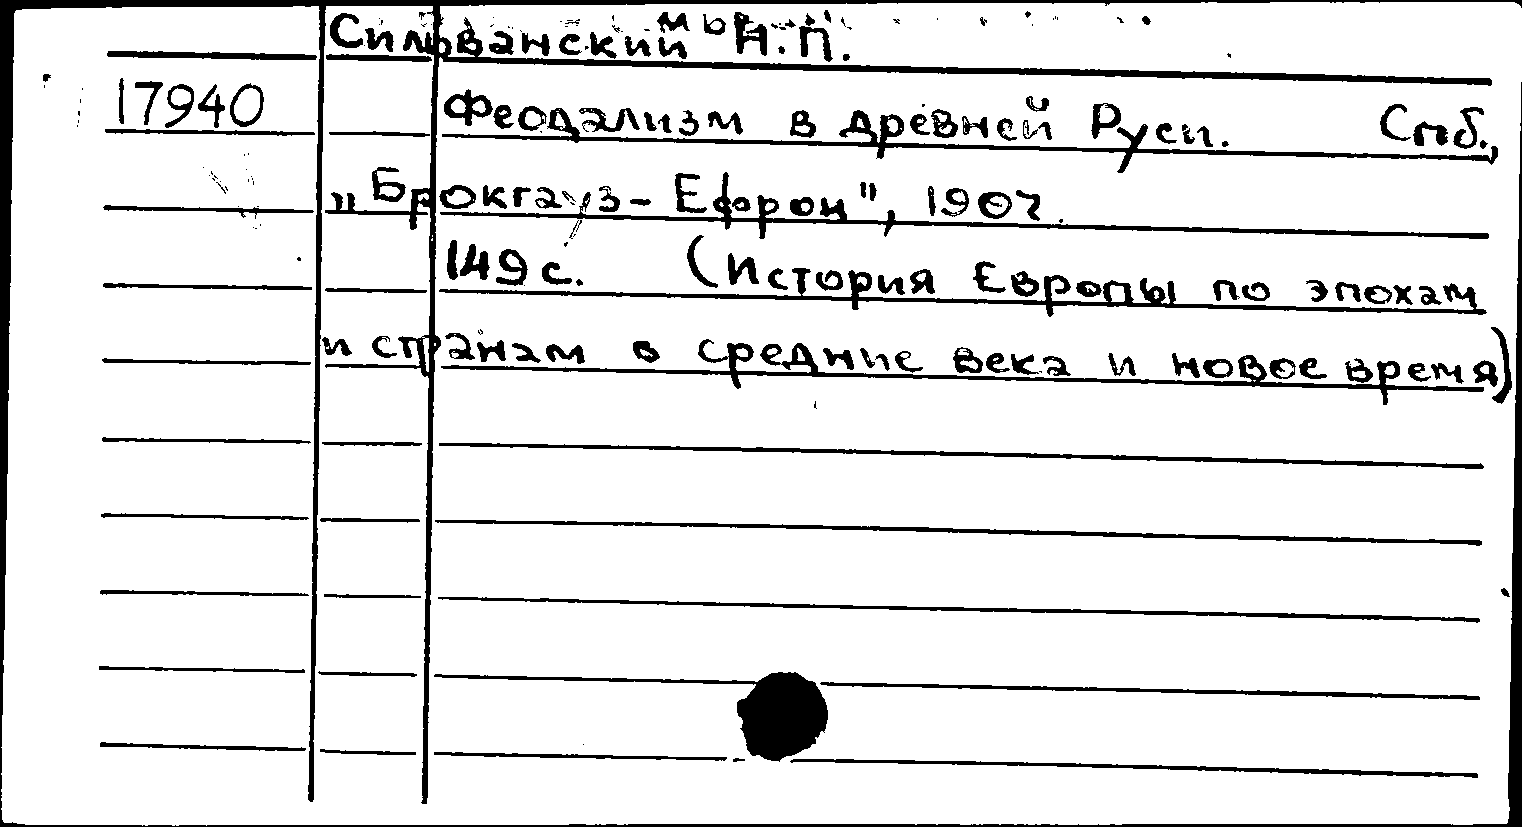 Сильванский Н.П.
17940 Феодализм в древней Руси. Спб.,
„Брокгауз-Ефрон", 1907.
149 с. (История Европы по эпохам
и странам в средние века и новое время)